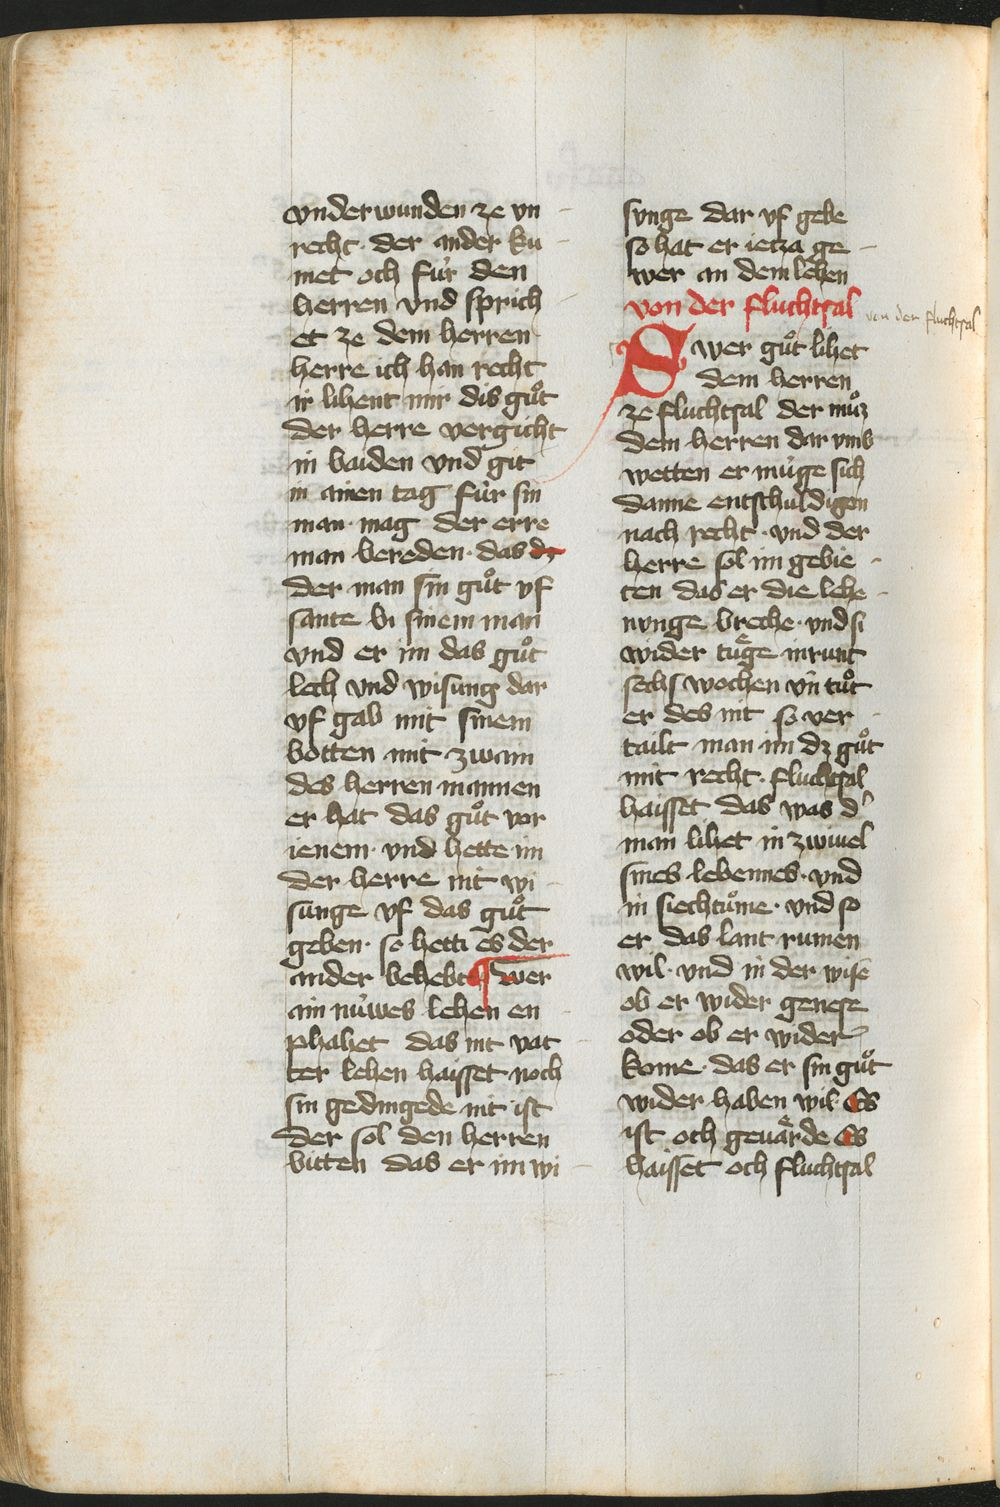 vnderwunden ze vn
recht · der ander ku
met och fúr den
herren vnd sprich
et ze dem herren
herre ich han recht
ir lihent mir dis guͦt
der herre vergicht
in baiden vnd git
in ainen tag fúr sin
man · mag der erre
man bereden · das dz
der man sin guͦt vf
sante bi sinem man
vnd er im das guͦt
lech vnd wisung dar
vf gab mit sinem
botten mit zwain
des herren mannen
er hat das guͦt vor
ienem · vnd hette im
der herre nit wi
sunge vf das guͦt
geben · so hetti es der
ander behebt ¶ wer
ain núwes lehen en
phahet das nit vat
ter lehen haisset noch
sin gedingede nit ist
der sol den herren
bitten das er im wi
synge dar vf gebe
so hat er ietza ge
wer an dem lehen
von der fluchtsal
von der fluchtsal
Swer guͦt lihet
dem herren
ze fluchtsal der muͦz
dem herren dar vmb
wetten er múge sich
danne entschuldigen
nach recht · vnd der
herre sol im gebie
ten das er die lehe
nvnge breche · vnd si
wider tuͤge inrunt
sechs wochen vn̄ tuͦt
er des nit so ver
tailt man im dz guͦt
mit recht · fluchtsal
haisset das was d'
man lihet in zwiuel
sines lebennes · vnd
in siechtuͦme · vnd so
er das lant rumen
wil · vnd in der wise
ob er wider genese
oder ob er wider
kome · das er sin guͦt
wider haben wil · Es
ist och geuaͤrde Es
haisset och fluchtsal